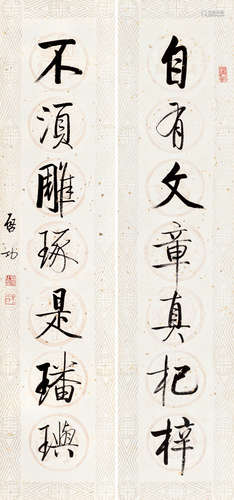 自有文章真杞梓
不須雕琢是璠璵
啟功